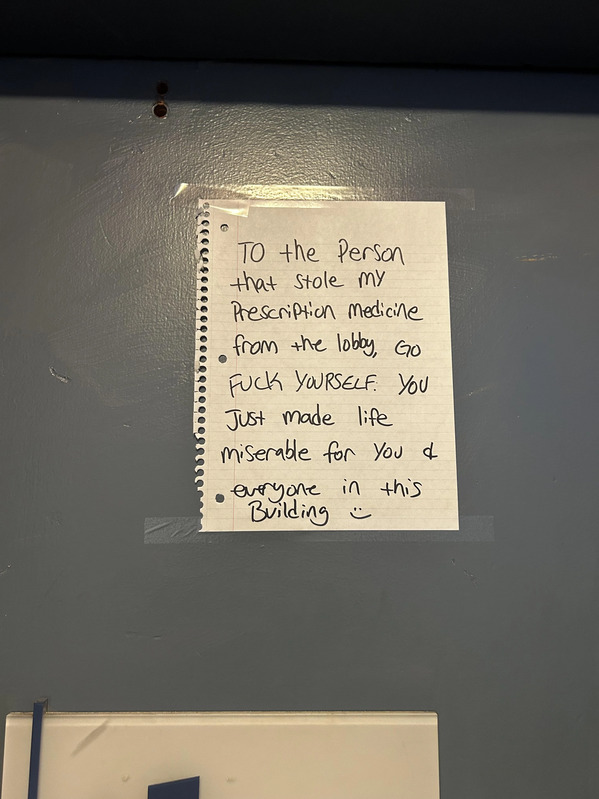 TO the Person
that stole my
Prescription medicine
from the lobby, GO
FUCK YOURSELF. YOU
Just made life
miserable for you &
everyone in this
Building :)